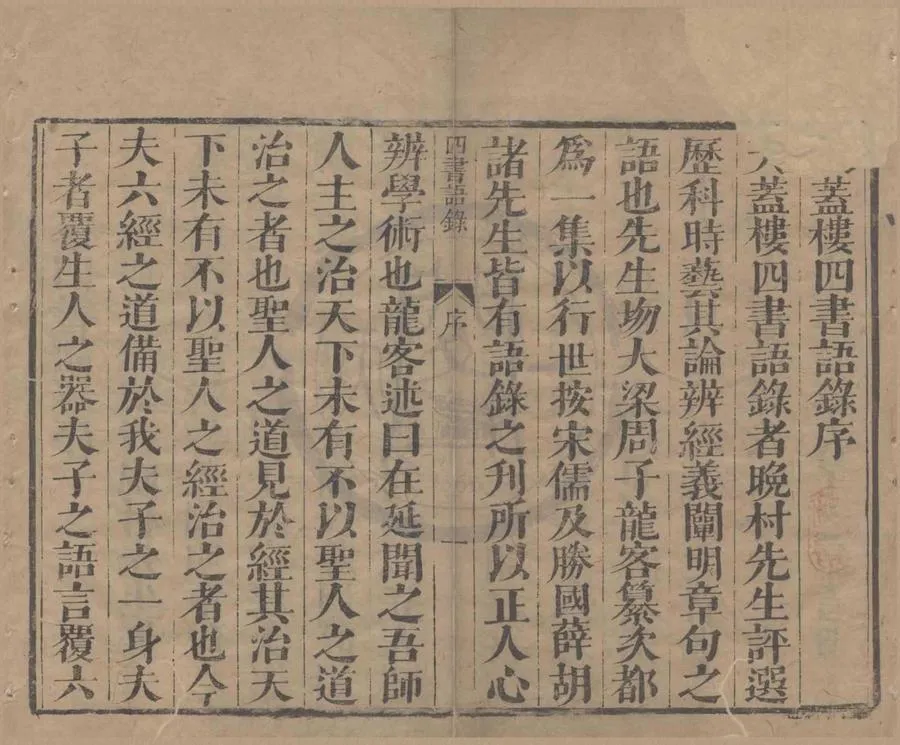 蓋樓四書語錄序
蓋樓四書語錄者晚村先生評選
歷科時藝其論辨經義闡明章句之
語也先生歿大梁周子龍客纂次都
為一集以行世按宋儒及勝國薛胡
諸先生皆有語錄之刋所以正人心
四書語錄
序
一
辨學術也龍客述曰在延聞之吾師
人主之治天下未有不以聖人之道
治之者也聖人之道見於經其治天
下未有不以聖人之經治之者也今
夫六經之道備於我夫子之一身夫
子者覆生人之器夫子之語言覆六